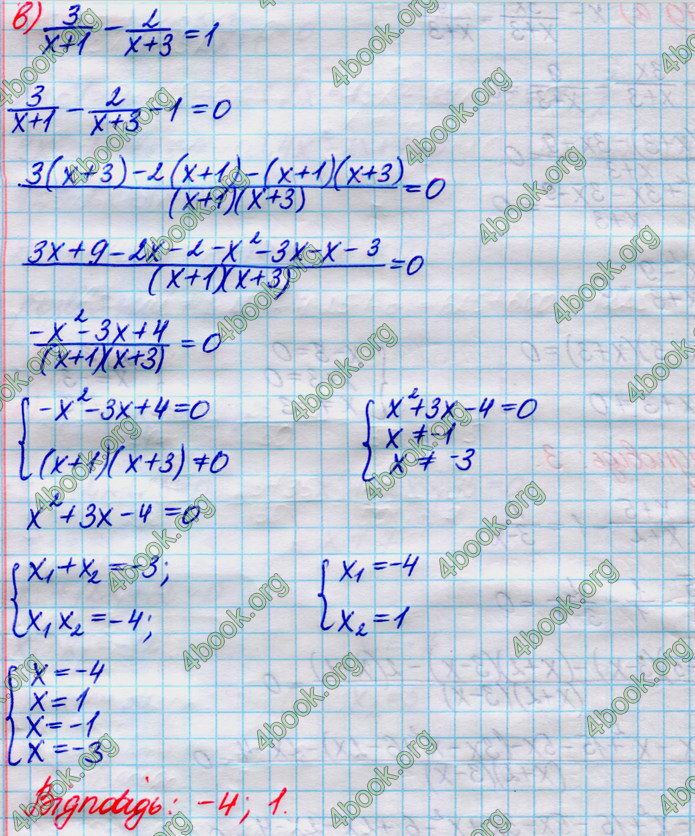 в) 3/(x+1) − 2/(x+3) = 1
3/(x+1) − 2/(x+3) − 1 = 0
(3(x+3) − 2(x+1) − (x+1)(x+3))/((x+1)(x+3)) = 0
(3x + 9 − 2x − 2 − x² − 3x − x − 3)/((x+1)(x+3)) = 0
(−x² − 3x + 4)/((x+1)(x+3)) = 0
{ −x² − 3x + 4 = 0
(x+1)(x+3) ≠ 0
{ x² + 3x − 4 = 0
x ≠ −1
x ≠ −3
x² + 3x − 4 = 0
{ x₁ + x₂ = −3;
x₁x₂ = −4;
{ x₁ = −4
x₂ = 1
{ x = −4
x = 1
x = −1
x = −3
Відповідь: −4; 1.
4book.org